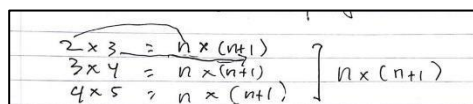 2 × 3 = n × (n+1)
3 × 4 = n × (n+1)
4 × 5 = n × (n+1)
n × (n+1)